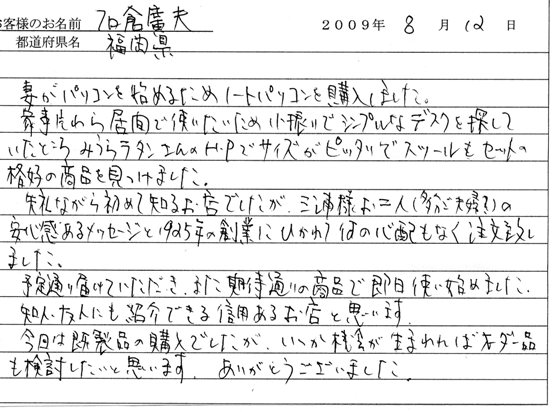 お客様のお名前 倉廣夫 2009年 8月 12日
都道府県名 福岡県
妻がパソコンを始めるためノートパソコンを購入しました。
家事片わら居間で使いたいため小振りでシンプルなデスクを探して
いたところみうらラタンさんのH・Pでサイズがピッタリでスツールもセットの
格好の商品を見つけました。
失礼ながら初めて知るお店でしたが、三浦様お二人(多分ご夫婦?)の
安心感あるメッセージと1925年の創業にひかれて何の心配もなく注文致し
ました。
予定通り届けていただき、また期待通りの商品で即日使い始めました。
知人・友人にも紹介できる信用あるお店と思います。
今回は既製品の購入でしたが、いつか機会が生まれればオーダー品
も検討したいと思います。ありがとうございました。